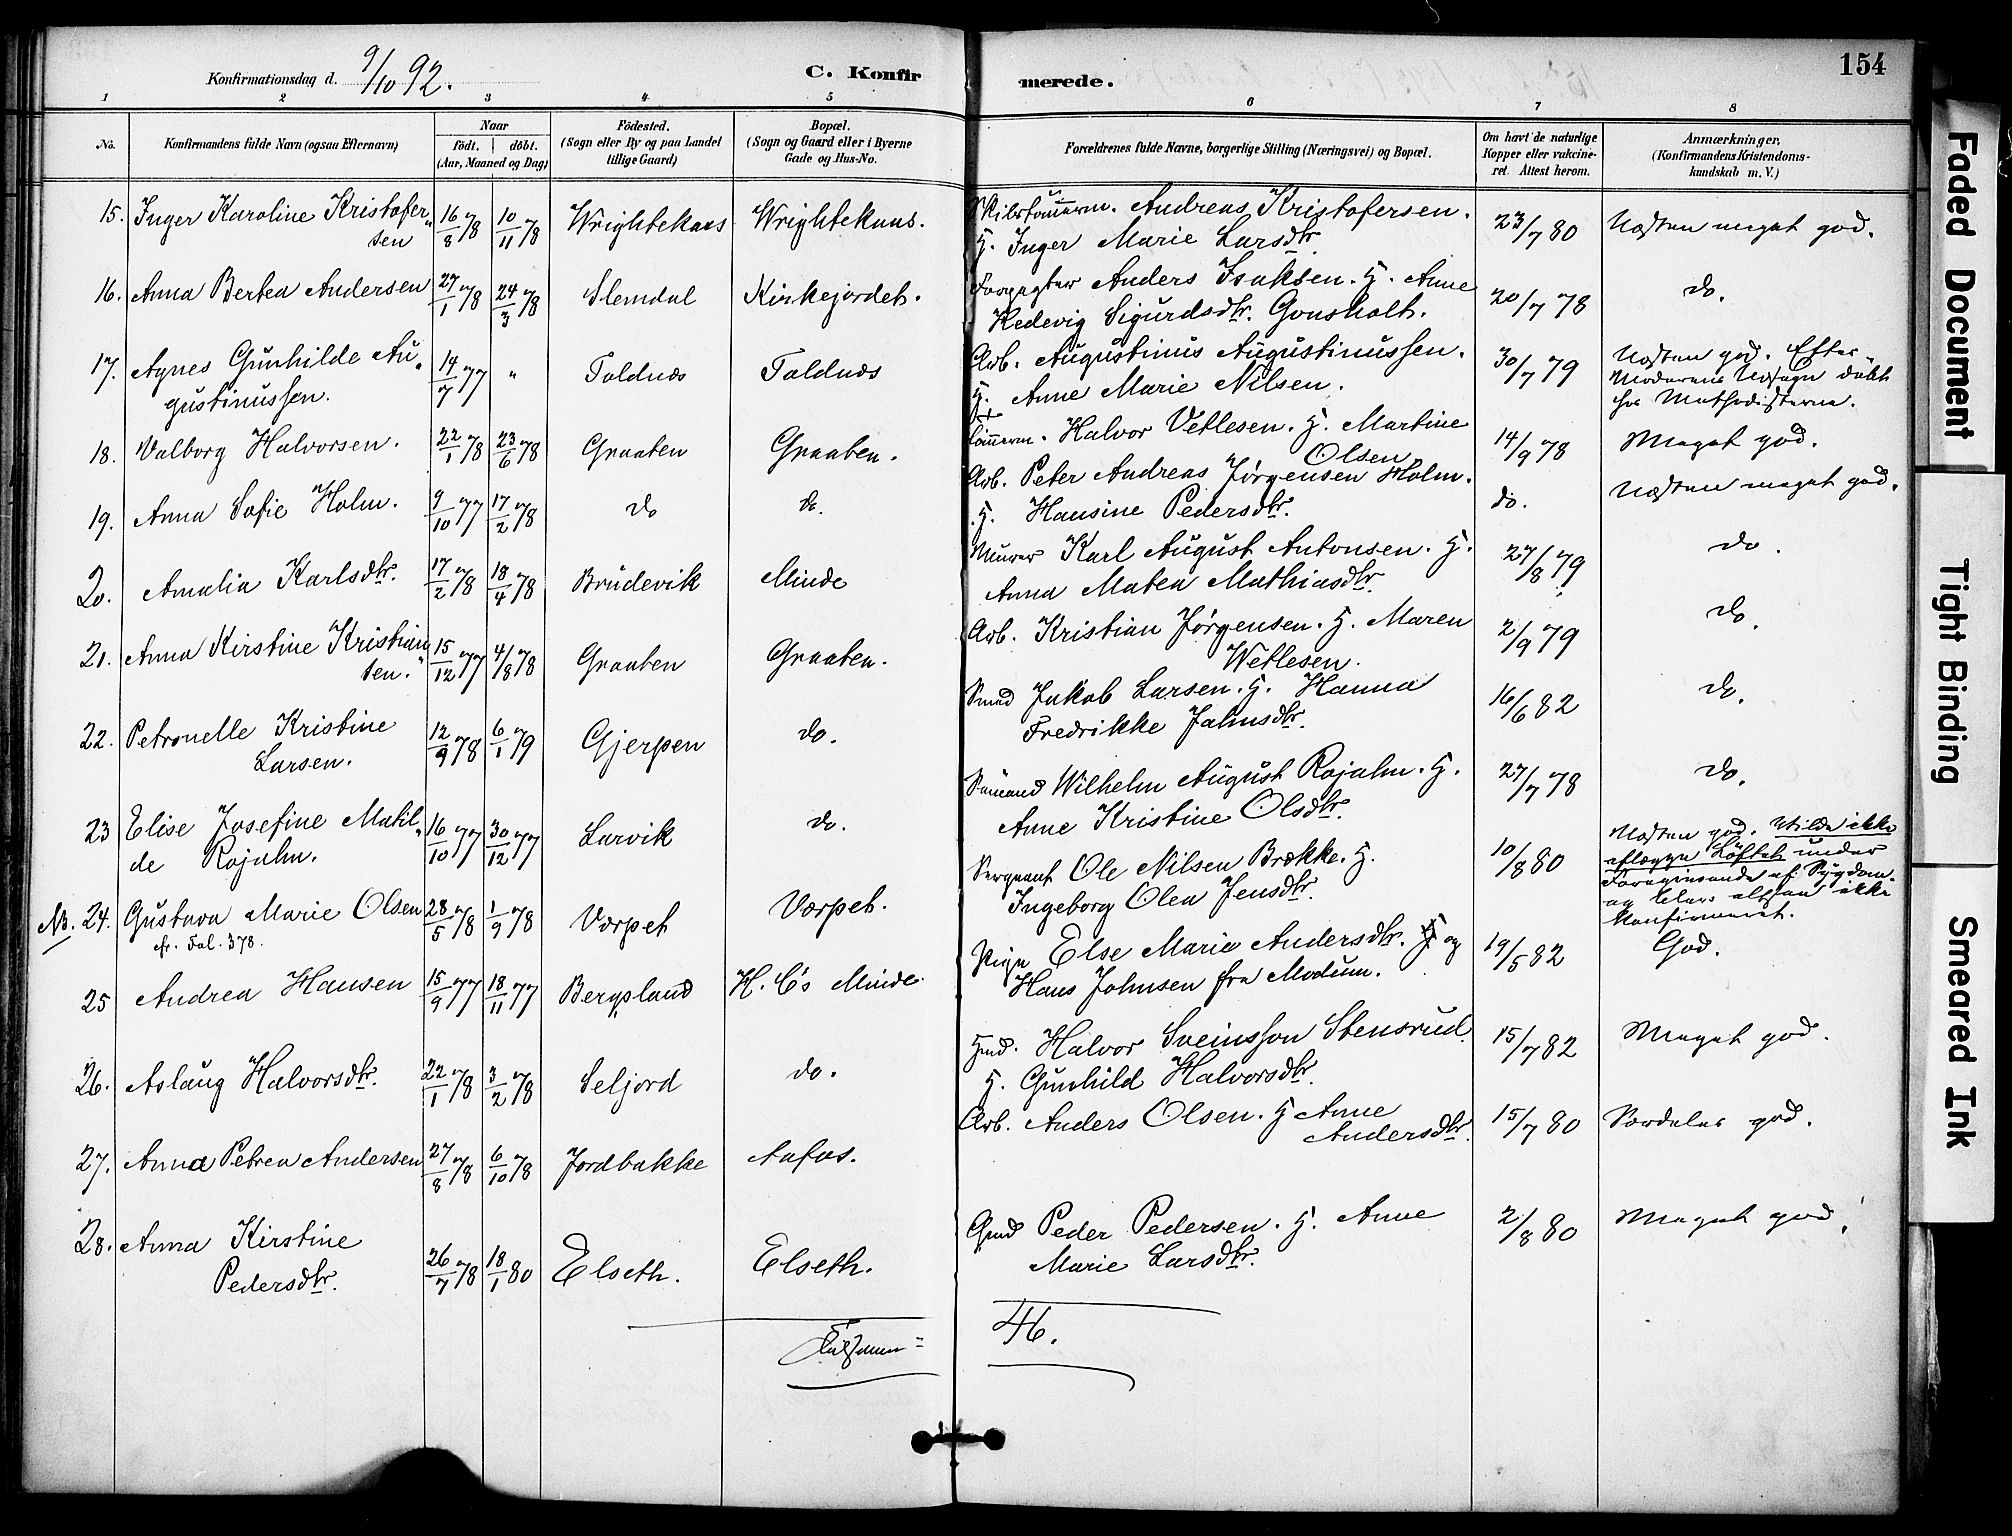 Konfirmationsdag d. 9/10 92.
C. Konfirmerede.
154
1 2 3 4 5 6 7 8
No.
Konfirmandens fulde Navn (ogsaa Efternavn)
Naar
födt. döbt.
(Aar, Maaned og Dag)
Födested.
(Sogn eller By og paa Landet
tillige Gaard)
Bopæl.
(Sogn og Gaard eller i Byerne
Gade og Hus-No.
Forældrenes fulde Navne, borgerlige Stilling (Næringsvei) og Bopæl.
Om havt de naturlige
Kopper eller vakcine-
ret. Attest herom.
Anmærkninger,
(Konfirmandens Kristendoms-
kundskab m. V.)
15. Inger Karoline Kristofer„ 16/8 78 10/11 78 Wrightekaas Wrightekaas. Skibstømmerm. Andreas Kristofersen. 23/7 80 Næsten meget god.
sen H. Inger Marie Larsdtr.
16. Anna Bertea Andersen 27/1 78 24/3 78 Slemdal Kirkejordet. Forpagter Anders Isaksen. H. Anne 20/7 78 do.
Hedevig Sigurdsdtr. Gonsholt.
17. Agnes Gunhilde Au„ 14/7 77 " Toldnæs Toldnæs Arb. Augustinus Augustinussen. 30/7 79 Næsten god. Efter
gustinussen. H. Anne Marie Nilsen. Moderens Udsagn døbt
hos Methodisterne.
18. Valborg Halvorsen. 22/1 78 23/6 78 Graaten Graaten. Tømmerm. Halvor Vetlesen. H. Martine 14/9 78 Meget god.
Olsen
19. Anna Sofie Holm. 9/10 77 17/2 78 do do. Arb. Peter Andreas Jørgensen Holm. do. Næsten meget god.
H. Hansine Pedersdtr.
20. Amalia Karlsdtr. 17/2 78 18/4 78 Brudevik Minde Murer Karl August Antonsen. H. 27/8 79 do.
Anna Matea Mathiasdtr.
21. Anna Kirstine Kristian 15/12 77 4/8 78 Graaten Graaten. Arb. Kristian Jørgensen. H. Maren 2/9 79 do.
sen." Wetlesen.
22. Petronelle Kristine 12/9 78 6/1 79 Gjerpen do. Smed Jakob Larsen. H. Hanna 16/6 82 do.
Larsen. Fredrikke Jahnsdtr.
23 Elise Josefine Matil„ 16/10 77 30/12 77 Larvik do. Sømand Wilhelm August Rojahn. H. 27/7 78 do.
de Rojahn. Anne Kristine Olsdtr.
NB. 24. Gustava Marie Olsen 28/5 78 1/9 78 Værpet Værpet. Sergeant Ole Nilsen Brække. H. 10/8 80 Næsten god. Vilde ikke
cfr. Fol. 378. Ingeborg Olea Jensdtr. aflægge Löftet under
Foregivende af Sygdom
og blev altsaa ikke
konfirmeret.
25 Andrea Hansen 15/9 77 18/11 77 Bergsland H. C's Minde Pige Else Marie Andersdtr. og 19/5 82 God.
Hans Johnsen fra Modum.
26. Aslaug Halvorsdtr. 22/1 78 3/2 78 Seljord do. Hmd. Halvor Sveinsson Stensrud. 15/7 82 Meget god.
H. Gunhild Halvorsdtr.
27. Anna Petrea Andersen 27/8 78 6/10 78 Jordbakke Aafos. Arb. Anders Olsen. H Anne 15/7 80 Særdeles god.
Andersdtr.
28. Anna Kirstine 26/7 78 18/1 80 Elseth. Elseth. Gmd Peder Pedersen. H. Anne 2/8 80 Meget god.
Pedersdtr. Marie Larsdtr.
Tilsammen = 46.
Faded Document
Tight Binding
Smeared Ink